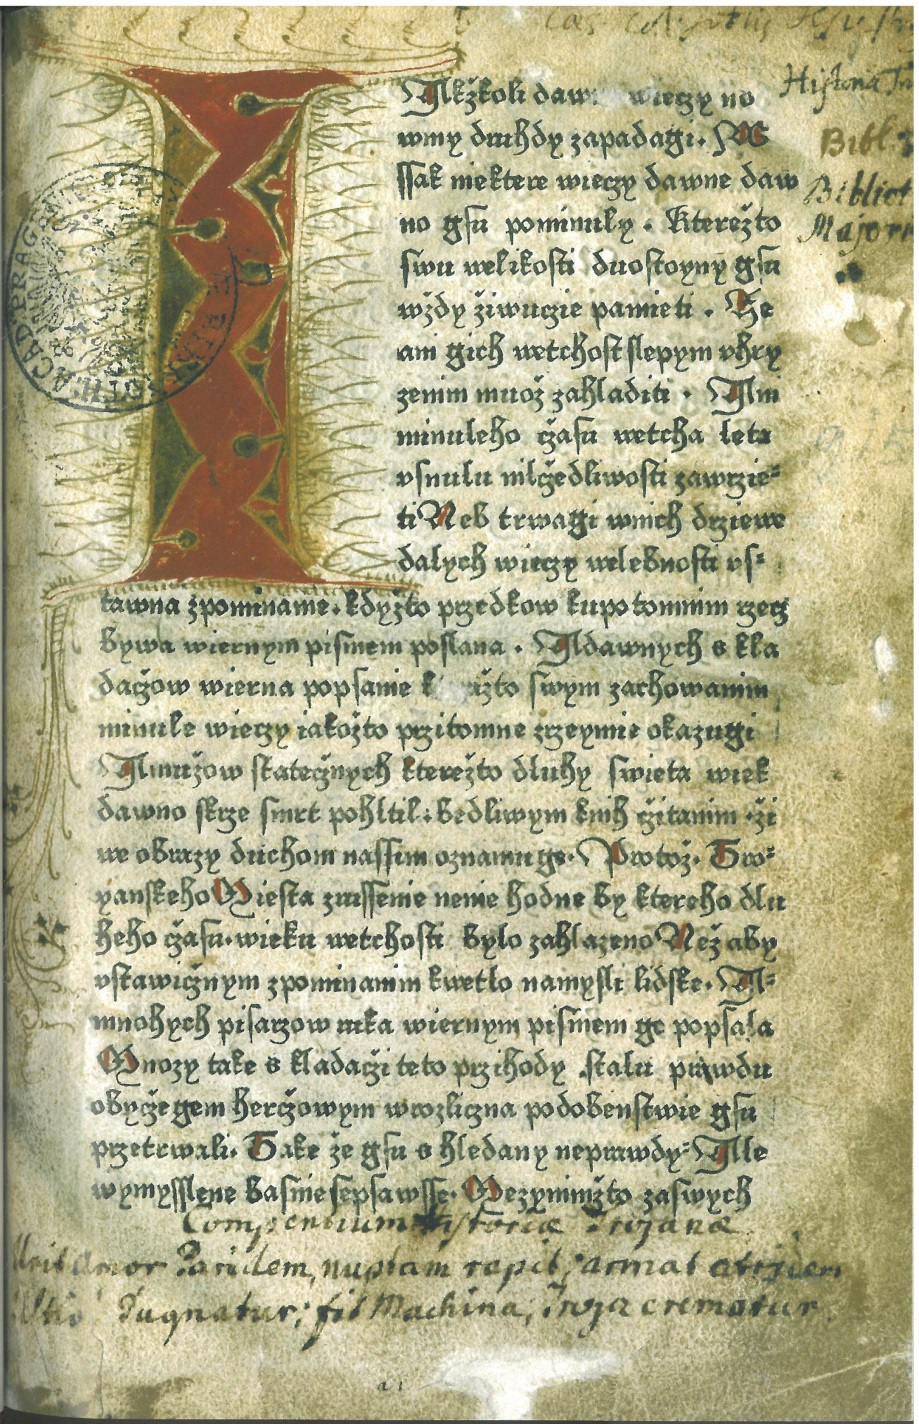 Historia
Bibl.
Majori
Alkžkoli dawn wieczy no
winy druhdy zapadagi. W
ssak niektere wieczy dawne daw
no gsu pominuly. Kterežto
swu welikosti duostoyny gsu
wždy žiwucie pamieti. Že
ani gich wetchost slepym vhry
zenim muož zahladiti. Ani
minuleho čzasu wetcha leta
vsnulu mlčzedliwosti zawrzie⸗
ti Neb trwagi wnich drziewe
dalych wieczy welebnosti vs⸗
tawna zpominanie. kdyžto przedkow kupotomnim rzecz
bywa wiernym pismem poslana. A dawnych s kla
dačzow wierna popsanie kterižto swym zachowanim
minule wieczy iakožto przitomne zrzeymie okazugi
A mužow statečznych kterežto dluhy swieta wiek
dawno skrze smrt pohltil. bedliwym knih čzitanim ži
we obrazy duchom nassim oznamuge. Protož. Tro⸗
yanskeho Miesta zrussenie nenie hodne by ktereho dlu
heho čzasu. wieku wetchosti bylo zahlazeno Než aby
vstawičznym zpominanim kwetlo namysli lidske. A⸗
mnohych pisarzow ruka wiernym pismem ge popsala
Mnozy take s kladačzi teto przihody stalu prawdu
obyčzegem herčzowym wrozliczna podobenstwie gsu
przetrwali. Take že gsu s hledany neprawdy. Alle
wymysslene basnie sepsawsse. Mezynimižto zaswych
Compendium Historiæ Trojanæ
Urit amor Paridem, nuptam rapit, armat atriden
Ultio Pugnatur; fit Machina, Troja crematur.